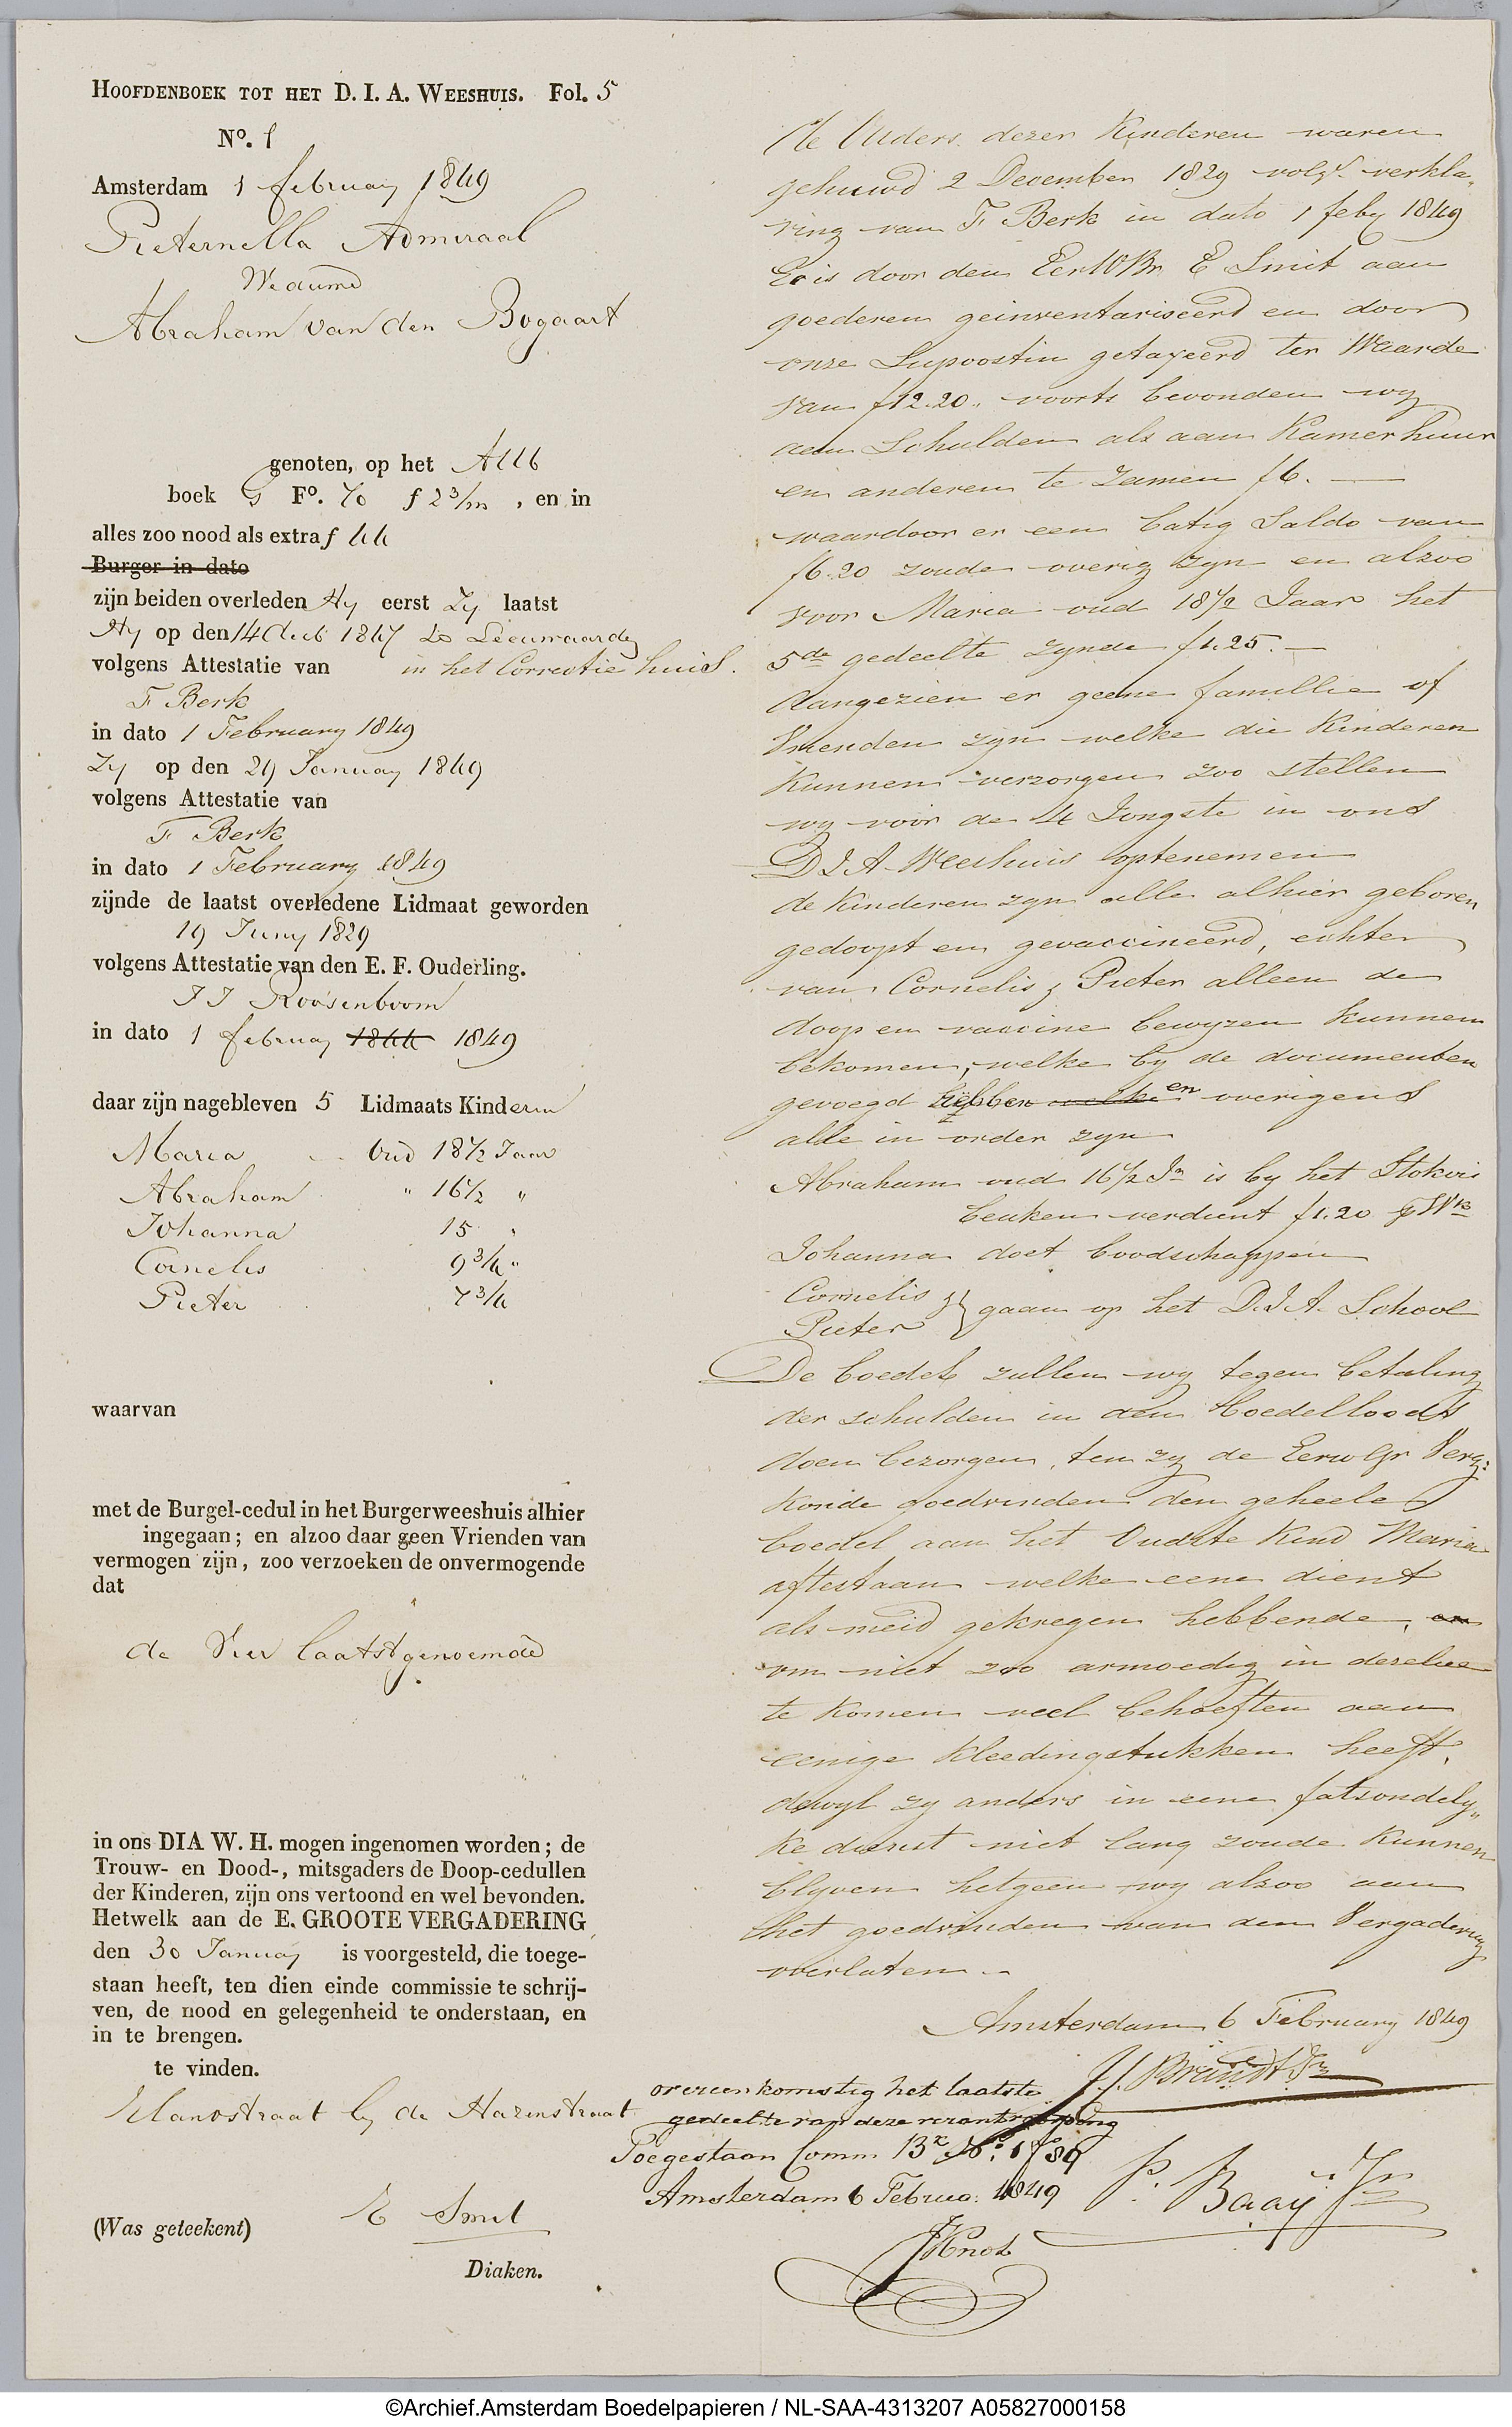 HOOFDENBOEK TOT HET D. I. A. WEESHUIS. Fol. 5
Nº. 1
Amsterdam 1 february 1849
Pieternella Admiraal
Weduwe
Abraham van den Bogaart
genoten, op het
boek G Fº. 70 f 2 3/m , en in
alles zoo nood als extra f 44
Burger in dato
zijn beiden overleden Hy eerst Zy laatst
Hy op den 14 1847 te Leeuwarden
volgens Attestatie van in het Correctie huis.
F Berk
in dato 1 February 1849
Zy op den 29 January 1849
volgens Attestatie van
F Berk
in dato 1 February 1849
zijnde de laatst overledene Lidmaat geworden
19 Juny 1829
volgens Attestatie van den E. F. Ouderling.
J J Roosenboom
in dato 1 february 1844 1849
daar zijn nagebleven 5 Lidmaats Kinderen
Maria Oud 18 1/2 Jaar
Abraham " 16 1/2 "
Johanna 15 "
Cornelis 9 3/4 "
Pieter 7 3/4
waarvan
met de Burgel-cedul in het Burgerweeshuis alhier
ingegaan; en alzoo daar geen Vrienden van
vermogen zijn, zoo verzoeken de onvermogende
dat
de Vier laatstgenoemde
in ons DIA W. H. mogen ingenomen worden; de
Trouw- en Dood-, mitsgaders de Doop-cedullen
der Kinderen, zijn ons vertoond en wel bevonden.
Hetwelk aan de E. GROOTE VERGADERING
den 30 January is voorgesteld, die toege-
staan heeft, ten dien einde commissie te schrij-
ven, de nood en gelegenheid te onderstaan, en
in te brengen.
te vinden.
Elandstraat by de Hazenstraat
(Was geteekent) E Smit
Diaken.
De Ouders dezer Kinderen waren
gehuwd 2 December 1829 volgs. verkla„
ring van F Berk in dato 1 feby 1849
Er is door den EerwBr E Smit aan
goederen geinventariseerd en door
onze Suppoostin getaxeerd ter Waarde
van f12.20,, voorts bevonden wy
aan Schulden als aan Kamerhuur
en anderen te zamen f6. —
waardoor er een batig Saldo van
f6.20 zoude overig zyn en alzoo
voor Maria oud 18 1/2 Jaar het
5de gedeelte zynde f1.25. —
Aangezien er geene famillie of
Vrienden zyn welke die Kinderen
kunnen verzorgen zoo stellen
wy voor de 4 Jongste in ons
D I A Weeshuis optenemen
de Kinderen zyn alle alhier geboren
gedoopt en gevaccineerd, echter
van Cornelis & Pieter alleen de
doop en vaccine bewyzen kunnen
bekomen, welke by de documenten
gevoegd hebben welke en overigens
alle in order zyn
Abraham oud 16 1/2 Jr is by het Stokvis
beuken verdient f1.20 p Wk
Johanna doet boodschappen
Cornelis &
Pieter } gaan op het D.I.A. School
De boedel zullen wy tegen betaling
der schulden in den boedelloods
doen bezorgen, ten zy de Eerwgr Verg:
konde goedvinden den geheele
boedel aan het Oudste Kind Maria
aftestaan welke eene dienst
als meid gekregen hebbende, en
om niet zoo armoedig in dezelve
te komen veel behoeften aan
eenige Kleedingstukken heeft,
dewyl zy anders in eene fatsoendely„
ke dienst niet lang zoude kunnen
blyven hetgeen wy alzoo aan
het goedvinden van den Vergadering
overlaten. —
Amsterdam 6 February 1849
J. J. Brandt Jr
overeenkomstig het laatste
gedeelte van deze verantwoording
Toegestaan Comm. Bk Nº. 1 f 89
Amsterdam 6 Februa: 1849
P. Baay Jr
JKnol
©Archief.Amsterdam Boedelpapieren / NL-SAA-4313207 A05827000158